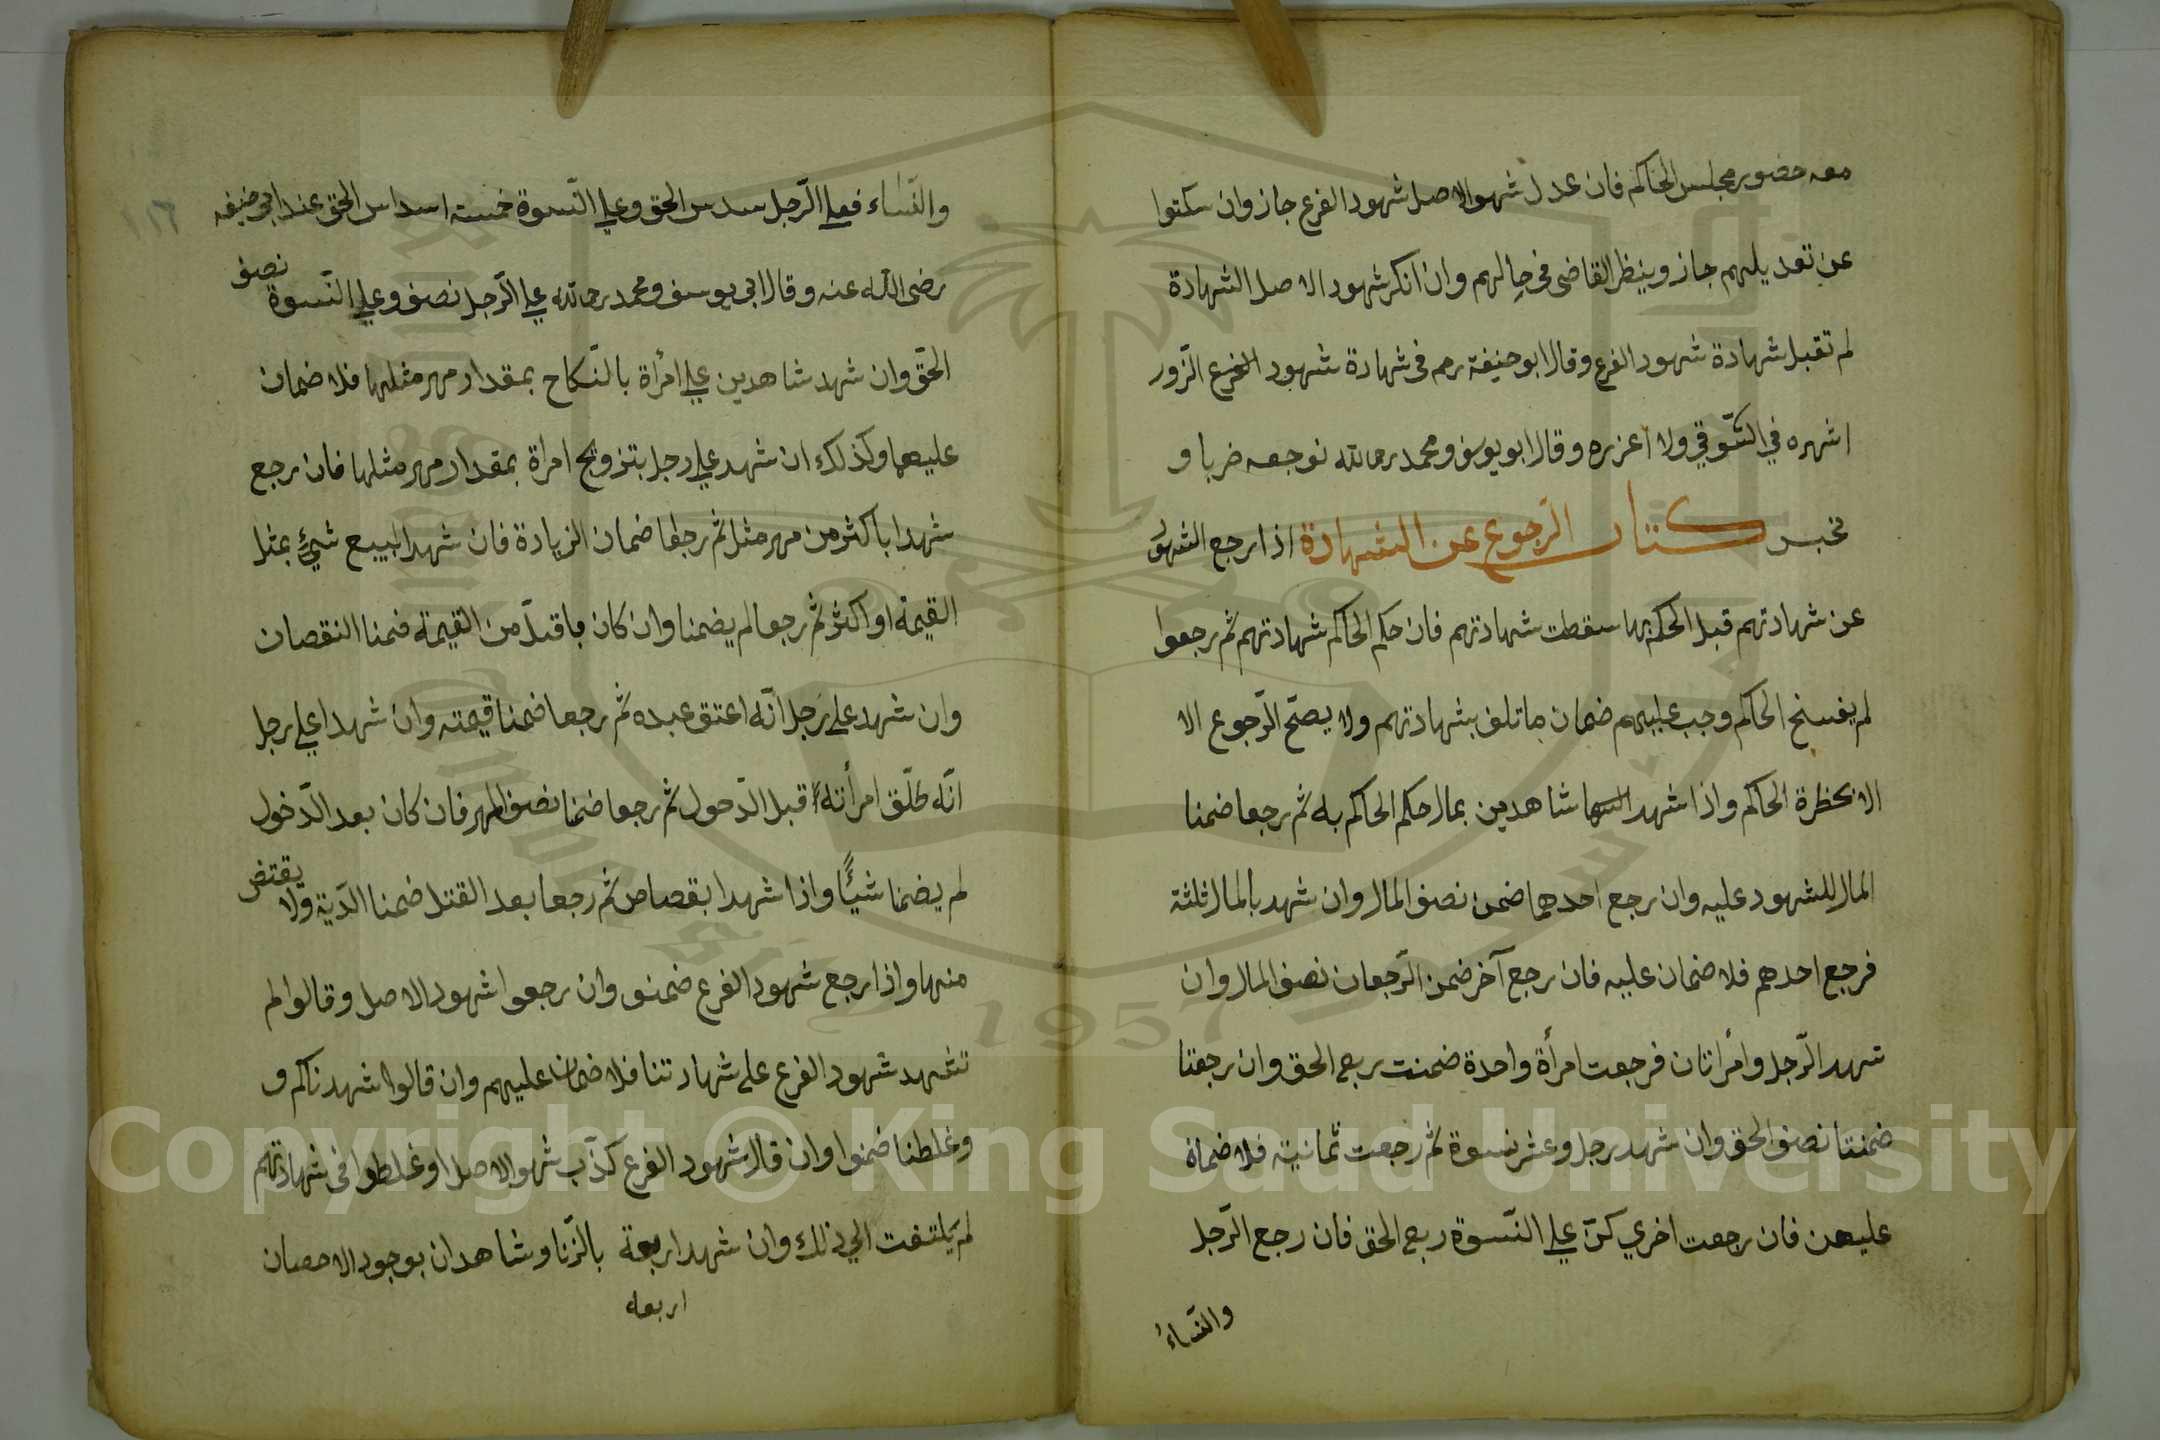 معه حضور مجلس الحاكم فان عدل شهو الاصل شهود الفرع جاز وان سكتوا
عن تعديلهم جاز وينظر القاضى فى حالهم وان انكر شهود الاصل الشهادة
لم تقبل شهادة شهود الفرع وقال ابو حنيفة رحم فى شهادة شهود الفرع الزور
اشهره في السّوق ولا اعزره وقال ابو يوسف ومحمد رحمالله نوجعه ضربا و
نحبس كتاب الرّجوع عن الشهادة اذا رجع الشهو
عن شهادتهم قبل الحكم بها سقطت شهادتهم فان حكم الحاكم شهادتهم ثم رجعوا
لم يفسخ الحاكم وجب عليهم ضمان ما تلف بشهادتهم ولا يصحّ الرّجوع الا
الا بحظرة الحاكم واذا شهد شاهدين بمال حكم الحاكم به ثم رجعا ضمنا
المال للشهود عليه وان رجع احدهما ضمن نصف المال وان شهد بالمال ثلثة
فرجع احدهم فلا ضمان عليه فان رجع آخر ضمن الرّجعان نصف المال وان
شهد الرّجل وامرأتان فرجعت امرأة واحدة ضمنت ربع الحق وان رجعتا
ضمنتا نصف الحق وان شهد رجل وعشر نسوة ثم رجعت ثمانية فلا ضمان
عليهن فان رجعت اخري كن علي النّسوة ربع الحق فان رجع الرّجل
والنّساءُ
١١٦
والنّساء فعلي الرّجل سدس الحق وعلي النّسوة خمسة اسداس الحق عند ابى حنيفه
رضى الله عنه وقال ابى يوسف ومحمد رحمالله علي الرّجل نصف وعلي النّسوة نصف
الحقّ وان شهد شاهدين علي امرأة بالنّكاح بمقدار مهر مثلها فلا ضمان
عليهما وكذلك ان شهد علي رجل بتزويج امراة بمقدار مهر مثلها فان رجع
شهدا باكثر من مهر مثل ثم رجعا ضمان الزيادة فان شهد البيع شيئ بمثل
القيمة او اكثر ثم رجعا لم يضمنا وان كان باقلّ من القيمة ضمنا النقصان
وان شهد على رجل انّه اعتق عبده ثم رجعا ضمنا قيمته وان شهدا علي رجل
انّه طلّق امرأته قبل الدّحول ثم رجعا ضمنا نصف المهر فان كان بعد الدّخول
لم يضمنا شيئًا واذا شهدا بقصاص ثم رجعا بعد القتل ضمنا الدّية ولا يقتض
منهما واذا رجع شهود الفرع ضمنو وان رجعوا شهود الاصل وقالوا لم
تشهد شهود الفرع على شهادتنا فلا ضمان عليهم وان قالوا شهدناكم و
وغلطنا ضمنوا وان قال شهود الفرع كذّب شهو الاصل او غلطوا فى شهادتهم
لم يلتفت الي ذلك وان شهد اربعة بالزّنا وشاهدان بوجود الاحصان
اربعه
Copyright © King Saud University
1957